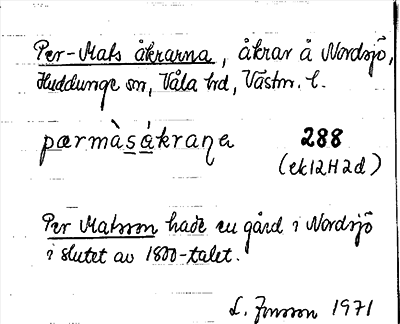 Per-Mats åkrarna, åkrar å Nordsjö,
Huddunge sn, Våla hd, Västm. l.
pærmàsákraṇa 288
(ek12H2d)
Per Matsson hade en gård i Nordsjö
i slutet av 1800-talet.
L. Jonsson 1971